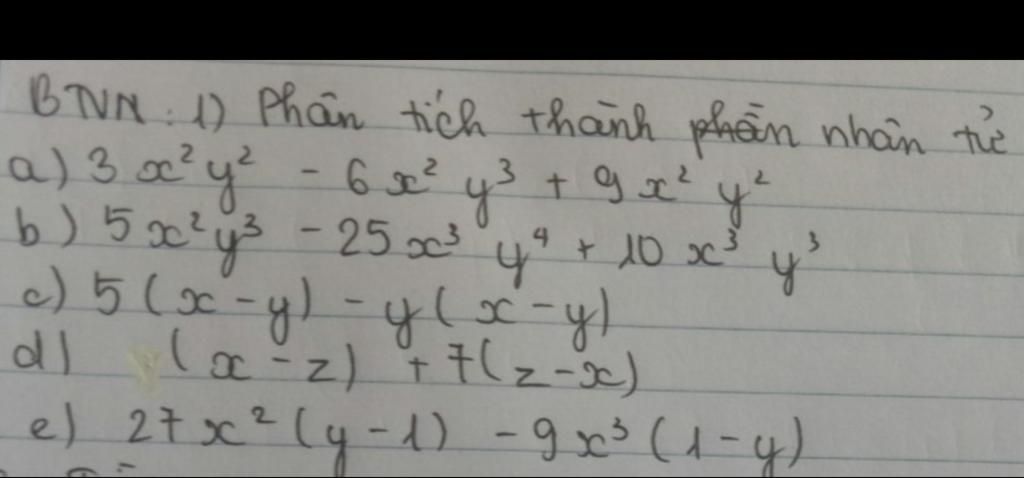 BTVN : 1) Phân tích thành phân nhân tử
a) 3x²y² - 6x²y³ + 9x²y²
b) 5x²y³ - 25x³y⁴ + 10x³y³
c) 5(x-y) - y(x-y)
d) (x-z) + 7(z-x)
e) 27x²(y-1) - 9x³(1-y)